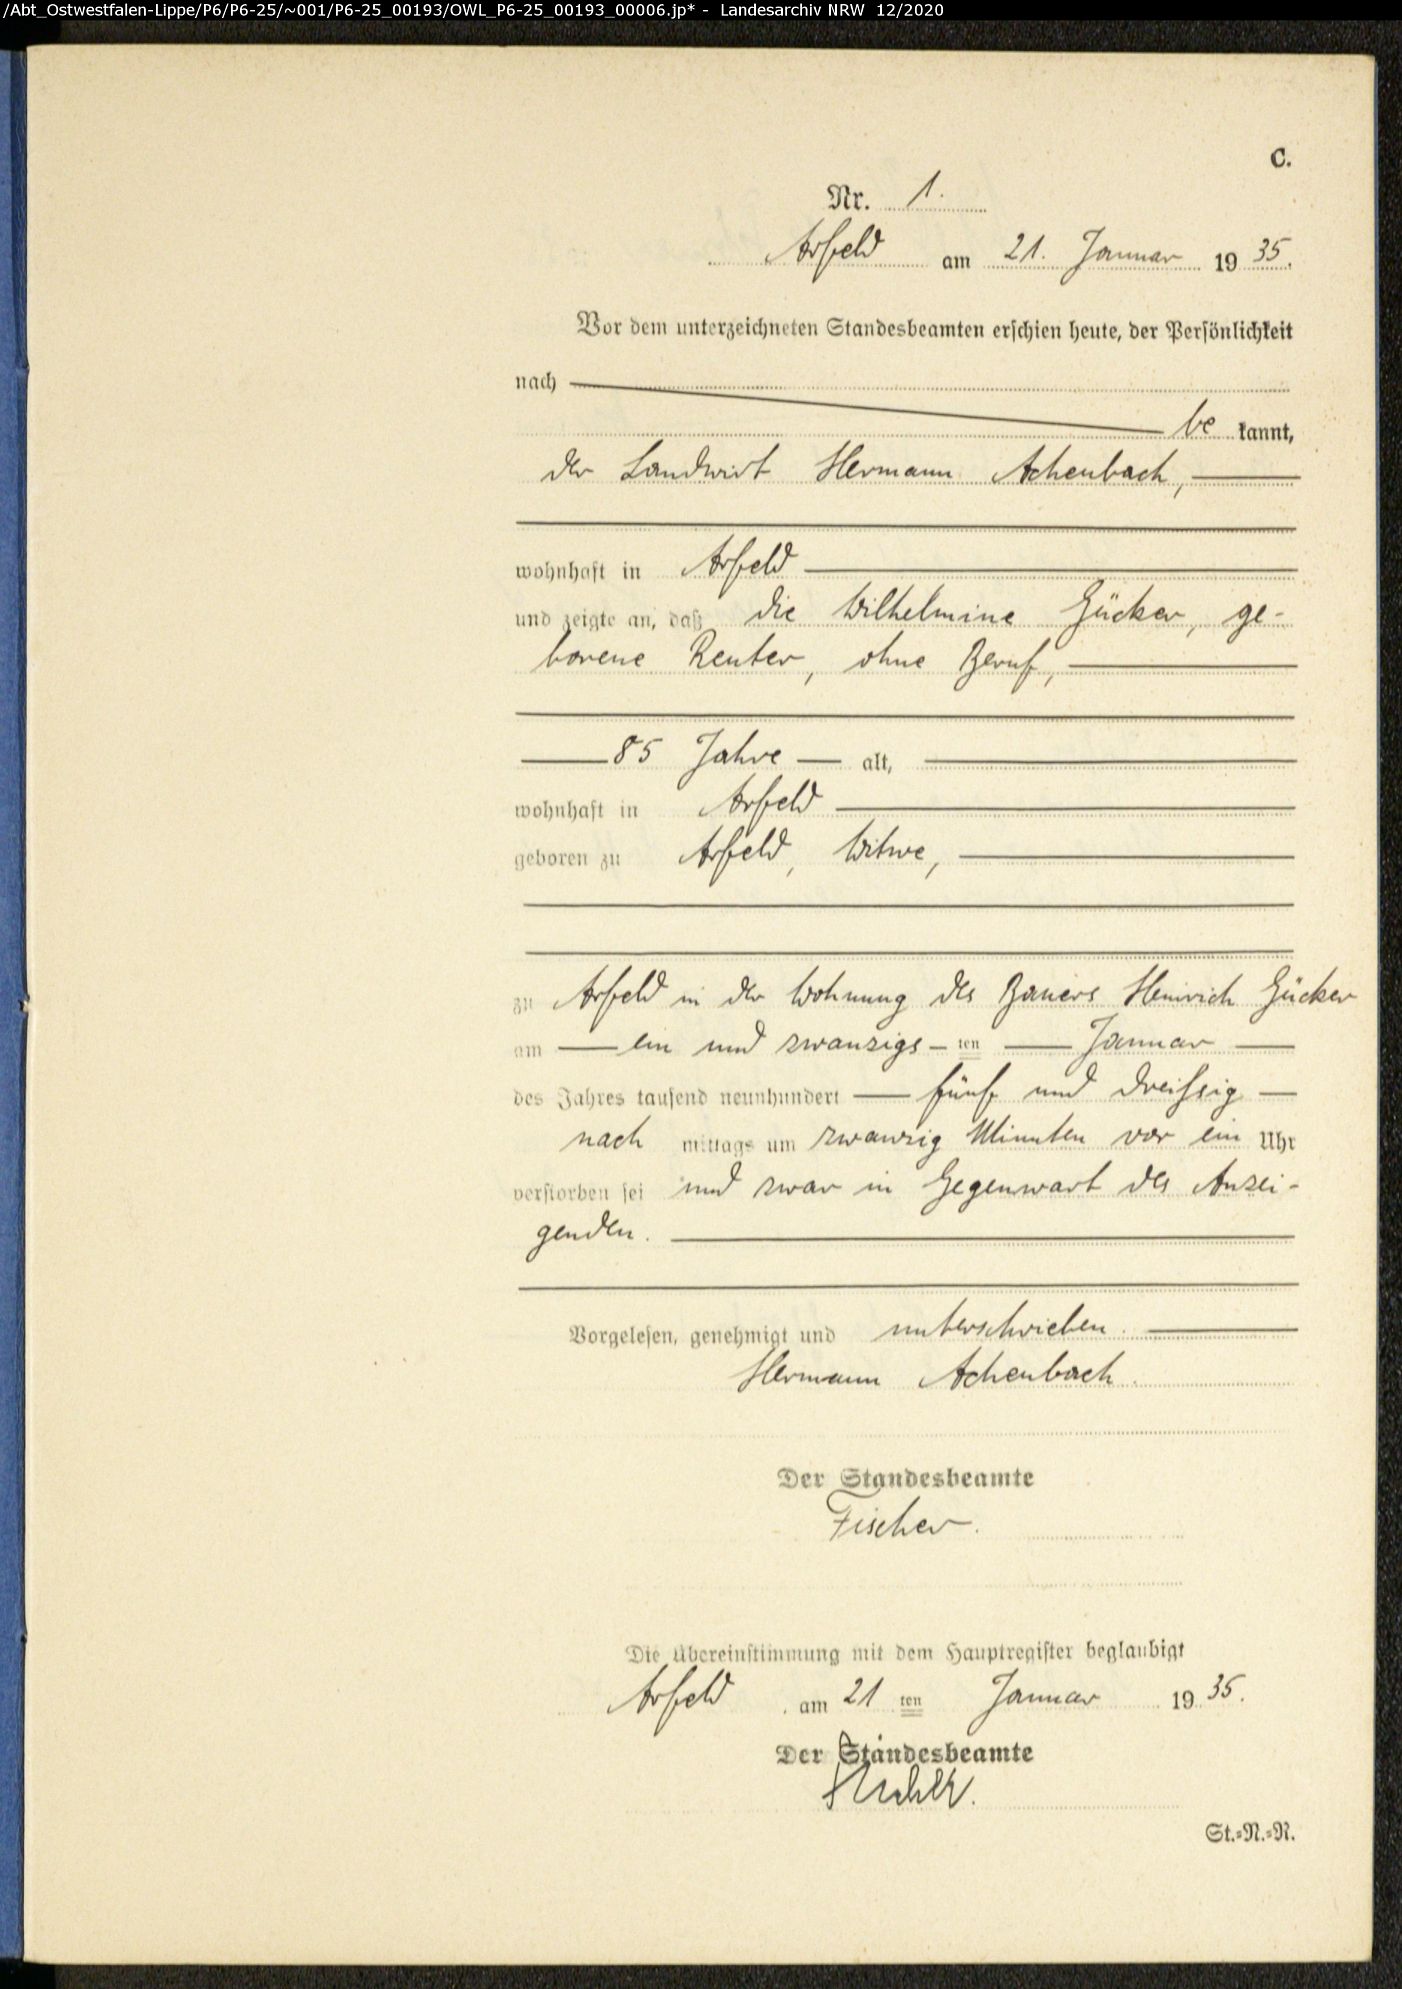 /Abt_Ostwestfalen-Lippe/P6/P6-25/~001/P6-25_00193/OWL_P6-25_00193_00006.jp* - Landesarchiv NRW 12/2020
C.
Nr. 1.
Arfeld am 21. Januar 1935.
Vor dem unterzeichneten Standesbeamten erschien heute, der Persönlichkeit
nach
be kannt,
der Landwirt Hermann Achenbach,
wohnhaft in Arfeld
und zeigte an, daß die Wilhelmine Gücker, ge-
borene Reuter, ohne Beruf,
85 Jahre alt,
wohnhaft in Arfeld
geboren zu Arfeld, Witwe,
zu Arfeld in der Wohnung des Bauers Heinrich Gücker
am ein und zwanzigs-ten Januar
des Jahres tausend neunhundert fünf und dreissig
nach mittags um zwanzig Minuten vor ein Uhr
verstorben sei und zwar in Gegenwart des Anzei-
genden.
Vorgelesen, genehmigt und unterschrieben.
Hermann Achenbach.
Der Standesbeamte
Fischer.
Die Übereinstimmung mit dem Hauptregister beglaubigt
Arfeld am 21 ten Januar 1935.
Der Standesbeamte
St.=R.=R.